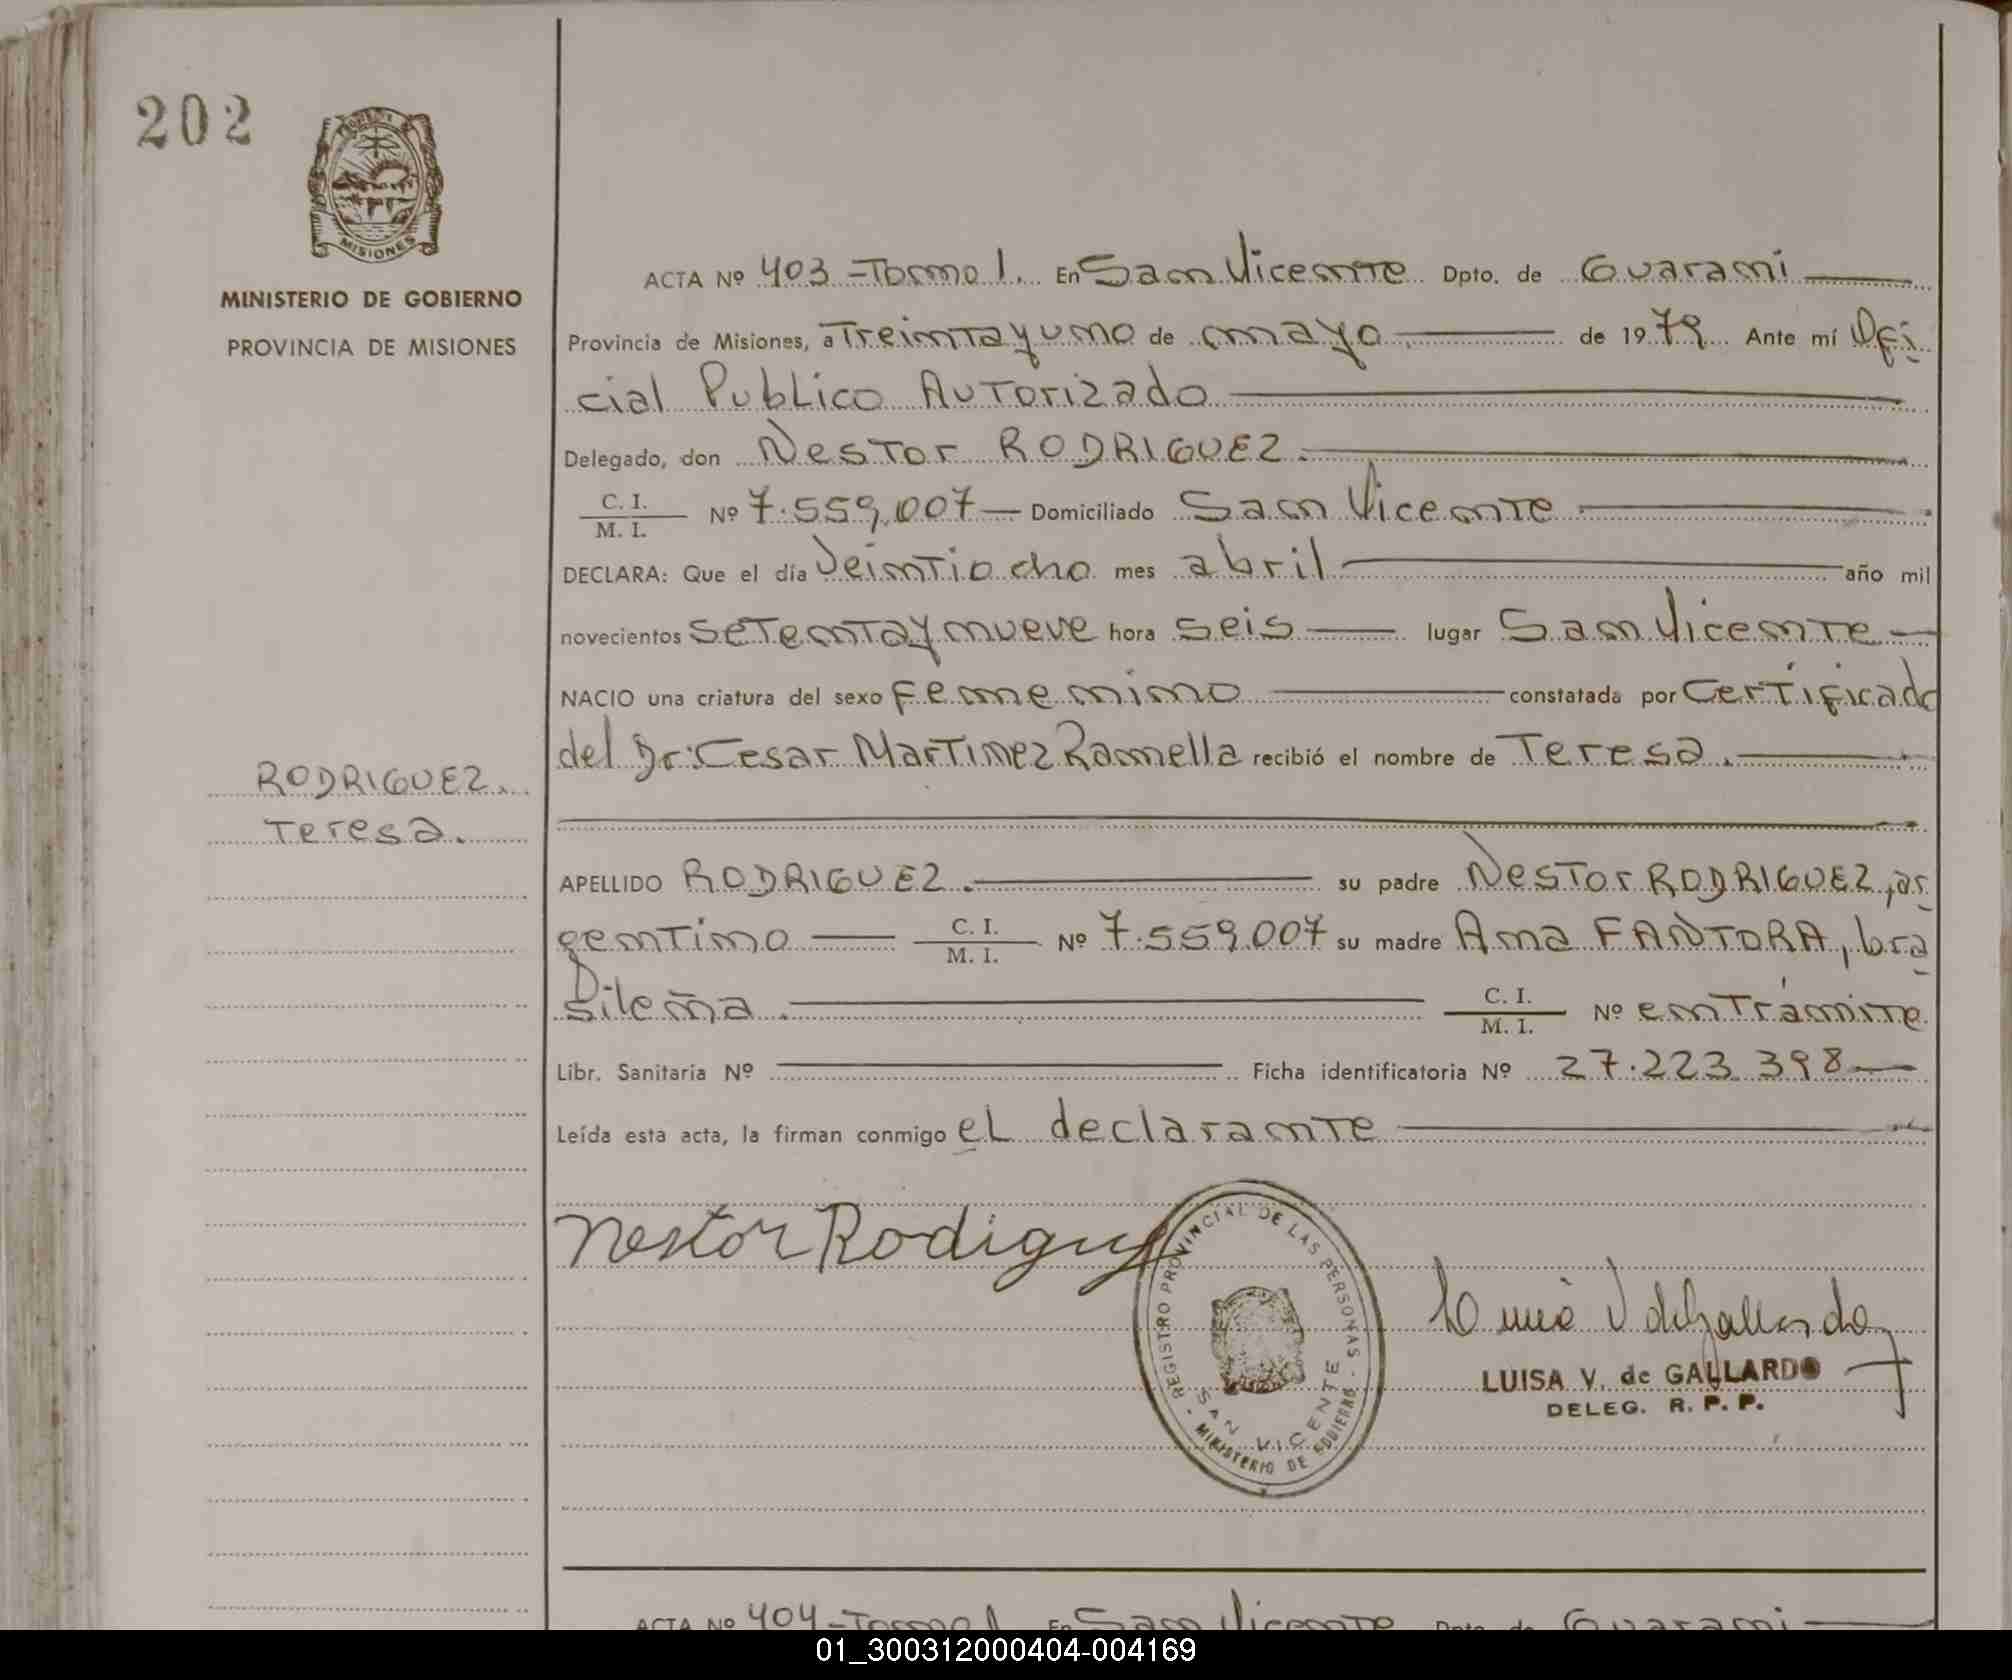 202
MISIONES
MINISTERIO DE GOBIERNO
PROVINCIA DE MISIONES
RODRIGUEZ.
Teresa.
ACTA Nº 403 - Tomo 1. En San Vicente Dpto. de Guarani
Provincia de Misiones, a Treinta y uno de mayo de 1979 Ante mí Ofi
cial Publico Autorizado
Delegado, don Nestor RODRIGUEZ.
C. I.
M. I. Nº 7.559.007 - Domiciliado San Vicente
DECLARA: Que el día Veintiocho mes abril año mil
novecientos setenta y nueve hora seis lugar San Vicente
NACIO una criatura del sexo femenino constatada por Certificado
del Dr: Cesar Martinez Ramella recibió el nombre de Teresa.
APELLIDO RODRIGUEZ. su padre Nestor RODRIGUEZ, ar
gentino C. I. M. I. Nº 7.559.007 su madre Ana FANTORA, bra
sileña. C. I. M. I. Nº en trámite
Libr. Sanitaria Nº Ficha identificatoria Nº 27.223.398
Leída esta acta, la firman conmigo el declarante
Nestor Rodiguez
REGISTRO PROVINCIAL DE LAS PERSONAS
SAN VICENTE
MINISTERIO DE GOBIERNO
LUISA V. de GALLARDO
DELEG. R. P. P.
ACTA Nº 404 - Tomo 1 En San Vicente Dpto. de Guarani
01_300312000404-004169